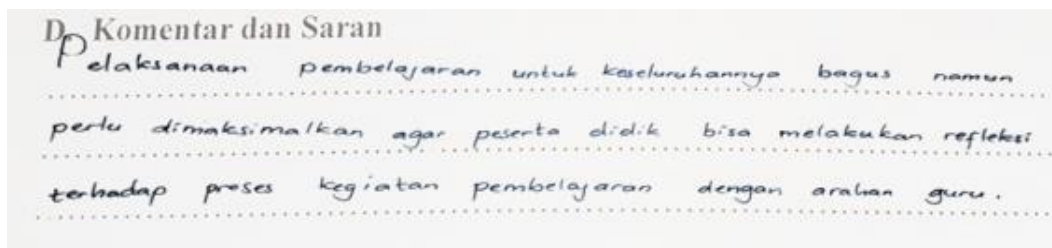 D. Komentar dan Saran
Pelaksanaan pembelajaran untuk keseluruhannya bagus namun
perlu dimaksimalkan agar peserta didik bisa melakukan refleksi
terhadap proses kegiatan pembelajaran dengan arahan guru.